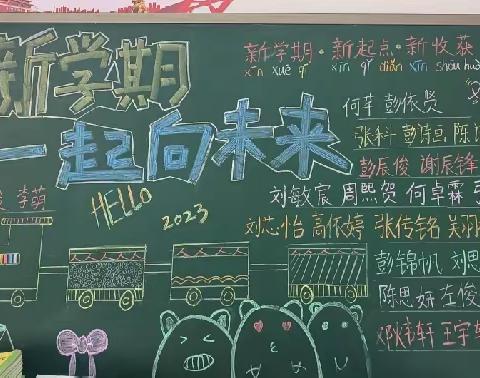 新学期·新起点·新收获
xīn xué qī xīn qǐ diǎn xīn shōu huò
新学期
一起向未来
何苹 彭依贤
张科 彭诗 陈
彭辰俊 谢振锋
李萌
刘敏宸 周熙贺 何卓霖
HELLO
2023
刘芯怡 高依婷 张传铭 吴羽
彭锦帆 刘思
陈思妍 左俊
邓梓轩 王宇